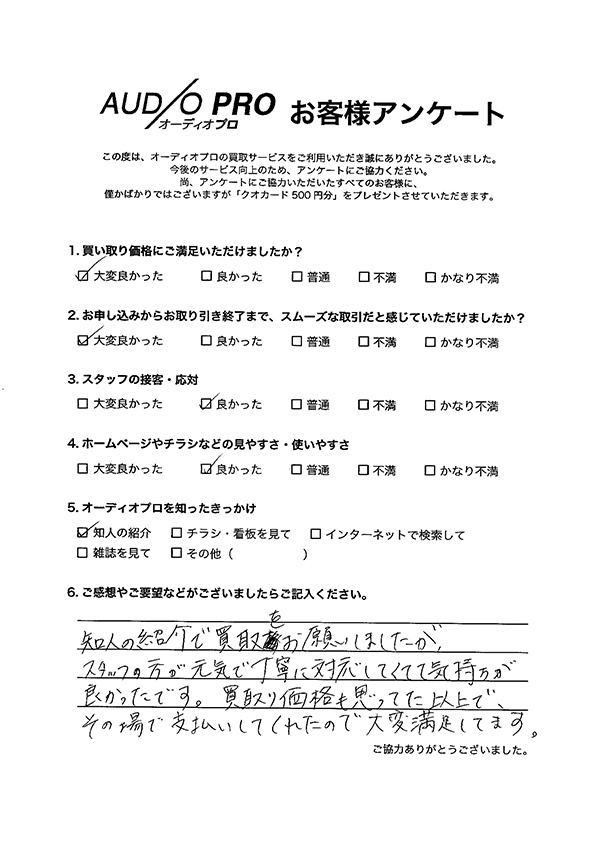 AUDIO PRO お客様アンケート
オーディオプロ
この度は、オーディオプロの買取サービスをご利用いただき誠にありがとうございました。
今後のサービス向上のため、アンケートにご協力ください。
尚、アンケートにご協力いただいたすべてのお客様に、
僅かばかりではございますが「クオカード500円分」をプレゼントさせていただきます。
1. 買い取り価格にご満足いただけましたか？
☑ 大変良かった □ 良かった □ 普通 □ 不満 □ かなり不満
2. お申し込みからお取り引き終了まで、スムーズな取引だと感じていただけましたか？
☑ 大変良かった □ 良かった □ 普通 □ 不満 □ かなり不満
3. スタッフの接客・応対
□ 大変良かった ☑ 良かった □ 普通 □ 不満 □ かなり不満
4. ホームページやチラシなどの見やすさ・使いやすさ
□ 大変良かった ☑ 良かった □ 普通 □ 不満 □ かなり不満
5. オーディオプロを知ったきっかけ
☑ 知人の紹介 □ チラシ・看板を見て □ インターネットで検索して
□ 雑誌を見て □ その他（ ）
6. ご感想やご要望などがございましたらご記入ください。
知人の紹介で買取をお願いしましたが、
スタッフの方が元気で丁寧に対応してくてて気持ちが
良かったです。買取り価格も思ってた以上で、
その場で支払いしてくれたので大変満足してます。
ご協力ありがとうございました。